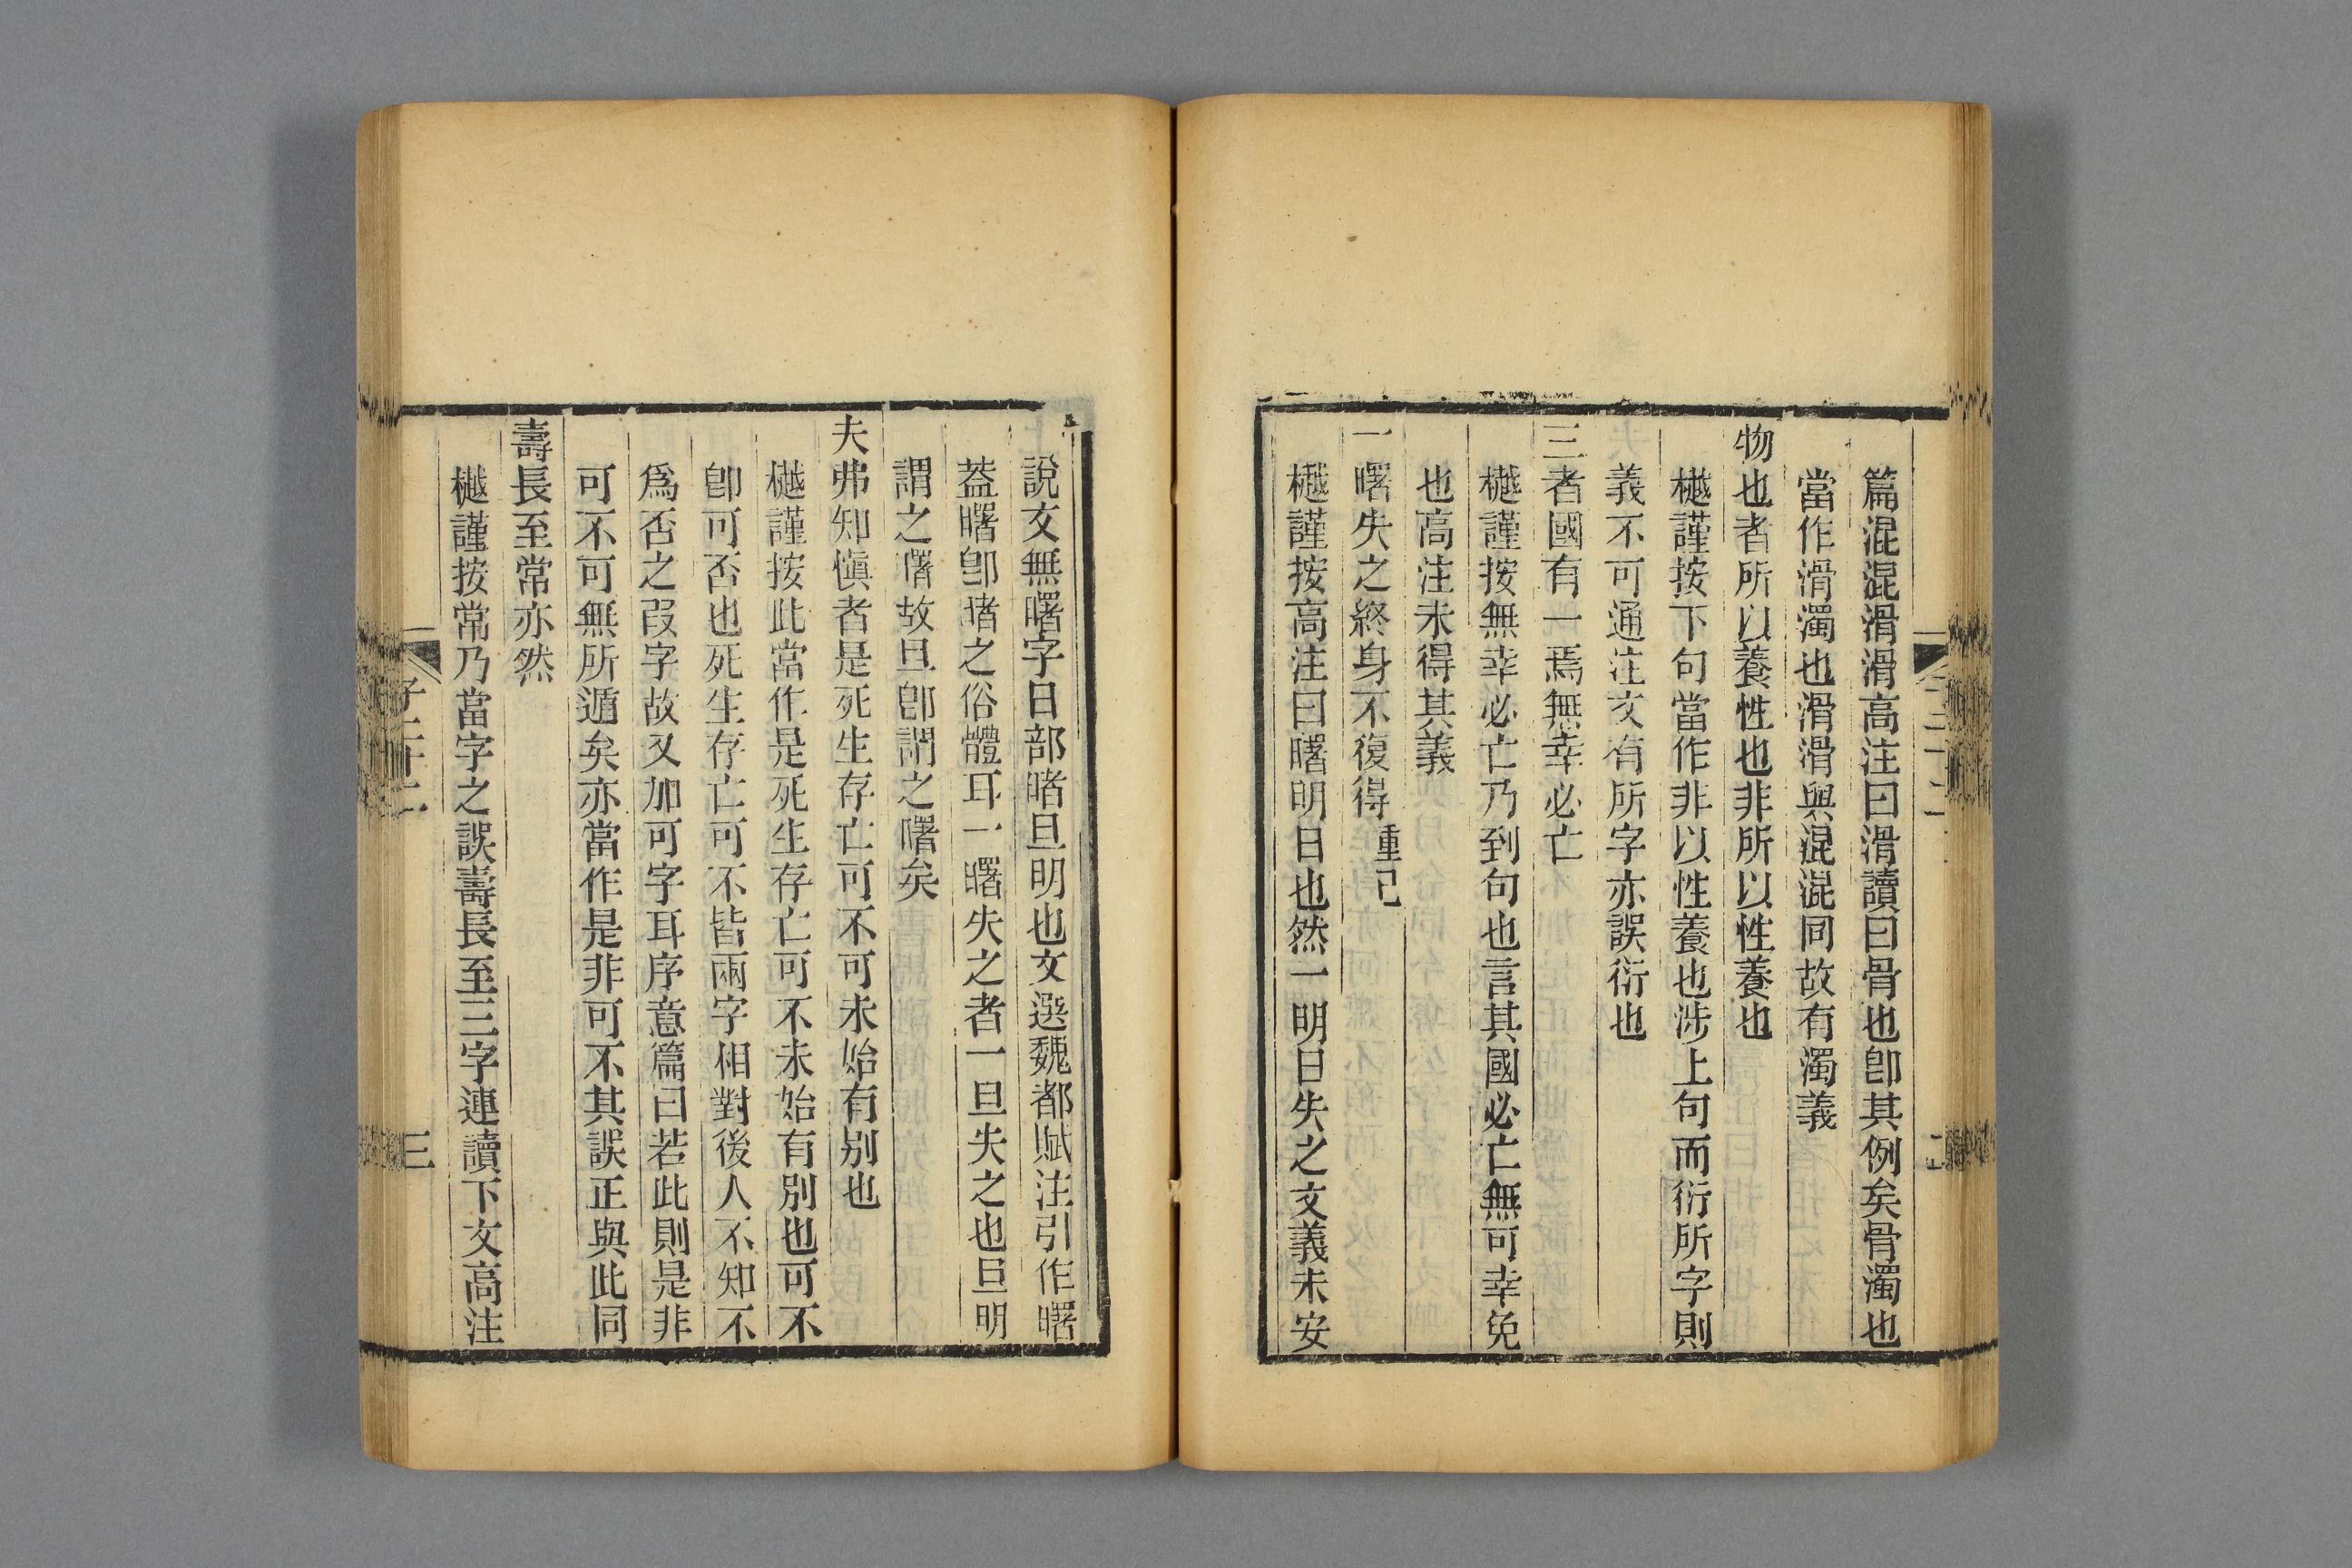 篇混混滑滑高注曰滑讀曰骨也卽其例矣骨濁也
當作滑濁也滑滑與混混同故有濁義
物也者所以養性也非所以性養也
樾謹按下句當作非以性養也涉上句而衍所字則
義不可通注文有所字亦誤衍也
三者國有一焉無幸必亡
樾謹按無幸必亡乃到句也言其國必亡無可幸免
也高注未得其義
一曙失之終身不復得重己
樾謹按高注曰曙明日也然一明日失之文義未安
說文無曙字日部睹旦明也文選魏都賦注引作曙
蓋曙卽睹之俗體耳一曙失之者一旦失之也旦明
謂之曙故旦卽謂之曙矣
夫弗知愼者是死生存亡可不可未始有別也
樾謹按此當作是死生存亡可不未始有別也可不
卽可否也死生存亡可不皆兩字相對後人不知不
爲否之叚字故又加可字耳序意篇曰若此則是非
可不可無所遁矣亦當作是非可不其誤正與此同
壽長至常亦然
樾謹按常乃當字之誤壽長至三字連讀下文高注
子二十二
三